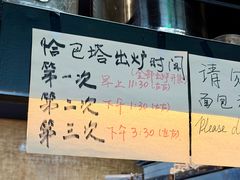 恰巴塔出炉时间
第一次 早上11:30(左右)
第二次 下午1:30(左右)
第三次 下午3:30(左右)
请勿
面包
Please d